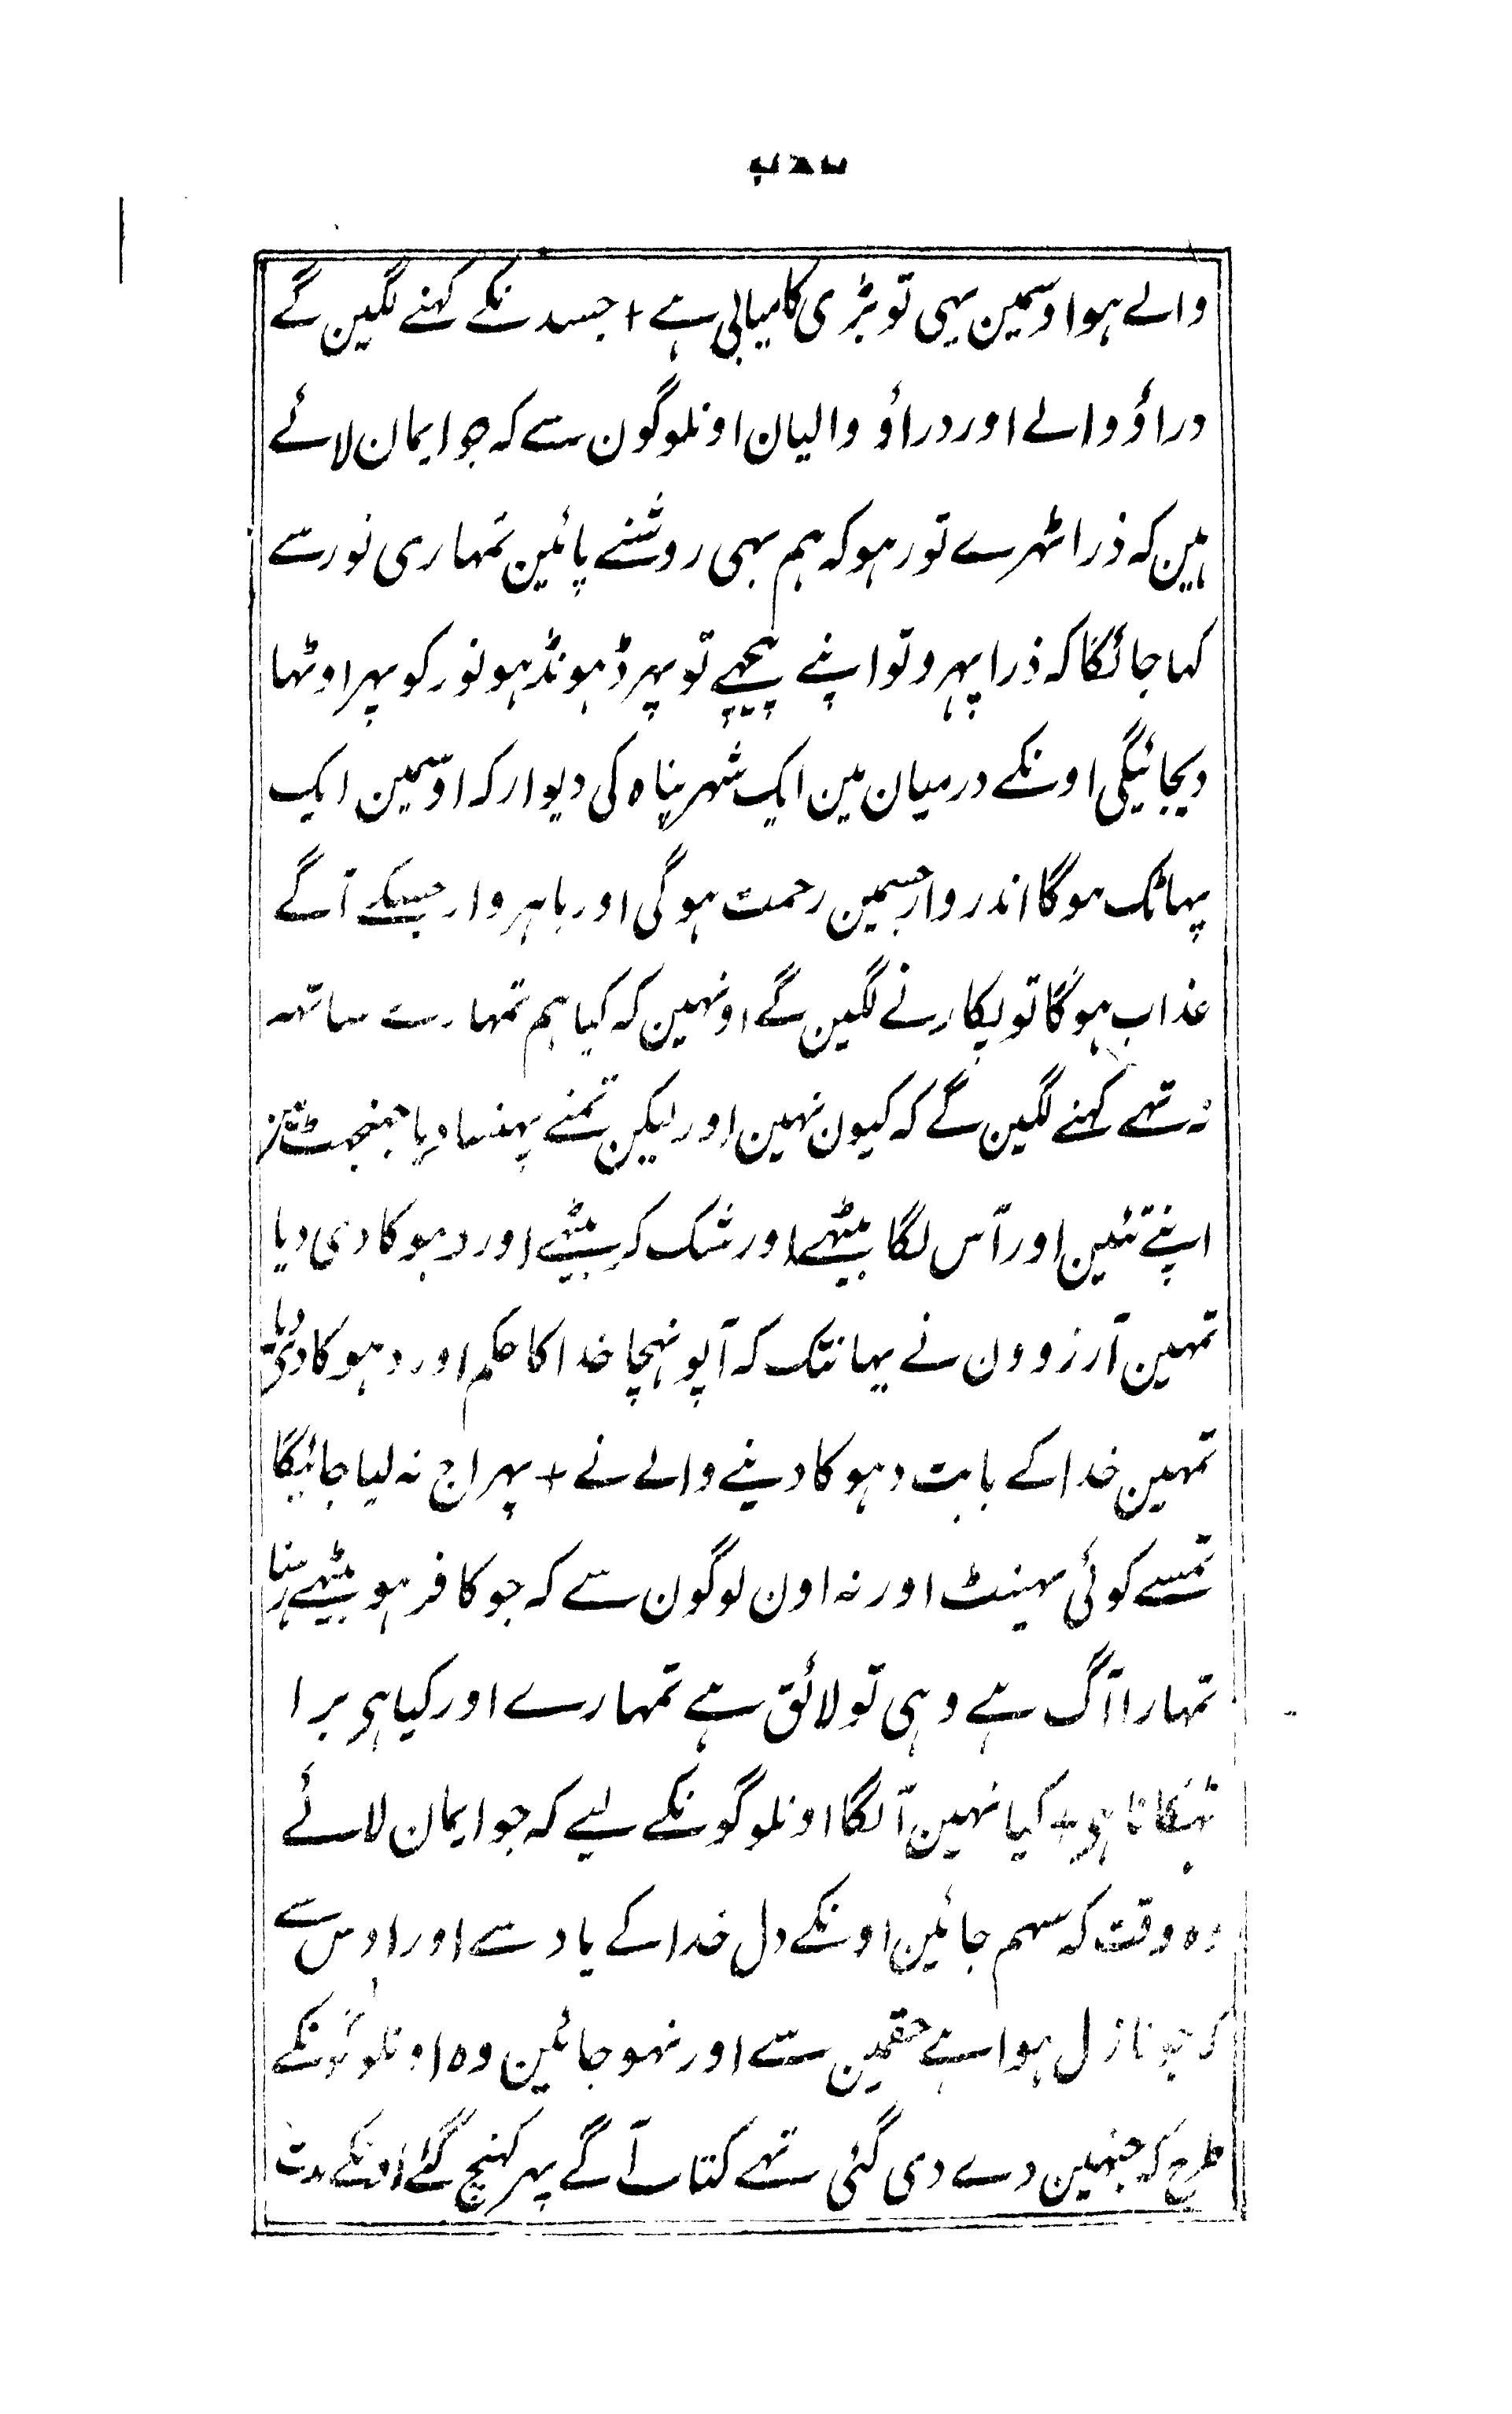 والے ہو اوسمین یہی تو بڑی کامیابی ہے + جسدنکے کہنے لگین گے
دراؤ والے اور دراؤ والیان اونلوگون سے کہ جو ایمان لائے
ہین کہ ذرا ٹھرے تو رہو کہ ہم بہی روشنے پائین تمہاری نور سے
کہا جائگا کہ ذرا پہرو تو اپنے پیچہے تو پہر ڈہونڈہو نور کو پہر اوٹہا
دیجائیگی اونکے درمیان مین ایک شہر پناہ کی دیوار کہ اوسمین ایک
پہاٹک ہوگا اندر وار جسمین رحمت ہوگی اور باہر وار جسکے آگے
عذاب ہوگا تو پکارنے لگین گے اونہین کہ کیا ہم تمہارے ساتہہ
نہ تہے کہنے لگین گے کہ کیون نہین اور لیکن تمنے پہنسا دیا جہنجہٹ مین
اپنے تئین اور آس لگا بیٹہے اور شک کر بیٹہے اور دہوکا دی دیا
تمہین آرزوون نے یہانتک کہ آپونہچا خدا کا حکم اور دہوکا دی دیا
تمہین خدا کے بابت دہوکا دینے والے نے + پہر اج نہ لیا جائیگا
تمسے کوئی بہینٹ اور نہ اون لوگون سے کہ جو کافر ہو بیٹہے رہنا
تمہارا آگ ہے وہی تو لائق ہے تمہارے اور کیا ہی برا
ٹہکانا ہی + کیا نہین آلگا اونلوگونکے لیے کہ جو ایمان لائے
وہ وقت کہ سہم جائین اونکے دل خدا کے یاد سے اور اوس سے
کہ جو نازل ہوا ہے حقمین سے اور نہو جائین وہ اونلوگونکے
طرح کہ جنہین دے دی گئی تہے کتاب آگے پہر کہنچ گئے اونکے مدت